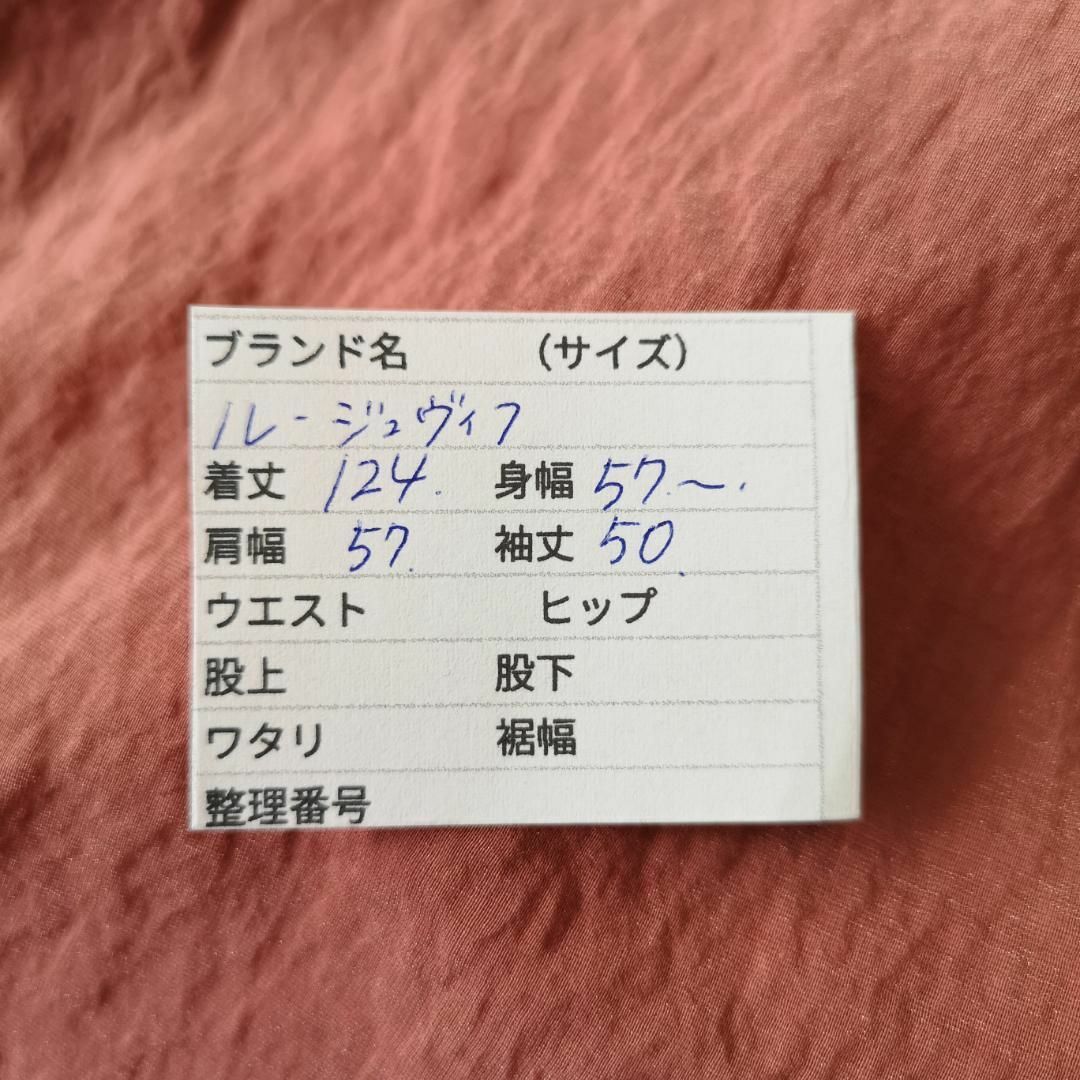 ブランド名 （サイズ）
ルージュヴィフ
着丈 124. 身幅 57.〜.
肩幅 57. 袖丈 50.
ウエスト ヒップ
股上 股下
ワタリ 裾幅
整理番号